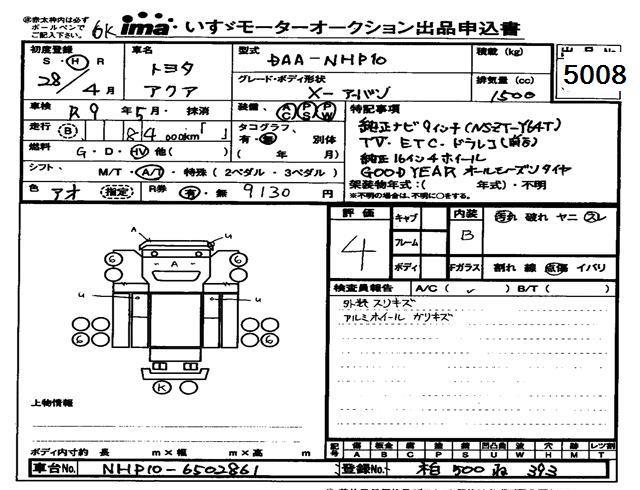 ※赤太枠内は必ず
ボールペンで
ご記入下さい。
6K ima いすゞモーターオークション出品申込書
初度登録 S・H R 28/4月
車名 トヨタ アクア
型式 DAA-NHP10
グレード・ボディ形状 X-アーバン
積載 (kg)
排気量 (cc) 1500
出品No. 5008
車検 R9年5月・抹消
走行 B 84000km「 」
燃料 G・D・HV 他( )
シフト M/T・A/T・特殊 (2ペダル・3ペダル)
色 アオ (指定) R券 有・無 9130円
装備、 AC PS PW
タコグラフ、 有・無 別体 ( 年 月)
特記事項
純正ナビ9インチ(NSZT-Y64T)
TV・ETC・ドラレコ(前后)
純正16インチホイール
GOODYEAR オールシーズンタイヤ
架装物年式:( 年式)・不明
※不明の場合は、不明に○をする。
評価 4
キャブ
フレーム
ボディ
内装 B 汚れ 破れ ヤニ スレ
Fガラス 割れ 線 点傷 イバリ
検査員報告 A/C( ✓ ) B/T( )
外装スリキズ
アルミホイール ガリキズ
A U
6 A 6
6 6
U U
6 6
K
上物情報
ボディ内寸約 長 m×幅 m×高 m
記号 傷 板金 腐 塗 錆 凹凸曲 波 穴 跡 レツ割
A B C P S U W H M T
車台No. NHP10-6502861
登録No. 柏 500 ね 393